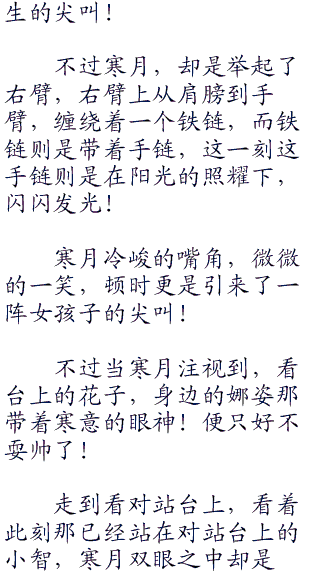 生的尖叫！
不过寒月，却是举起了
右臂，右臂上从肩膀到手
臂，缠绕着一个铁链，而铁
链则是带着手链，这一刻这
手链则是在阳光的照耀下，
闪闪发光！
寒月冷峻的嘴角，微微
的一笑，顿时更是引来了一
阵女孩子的尖叫！
不过当寒月注视到，看
台上的花子，身边的娜姿那
带着寒意的眼神！便只好不
耍帅了！
走到看对站台上，看着
此刻那已经站在对站台上的
小智，寒月双眼之中却是